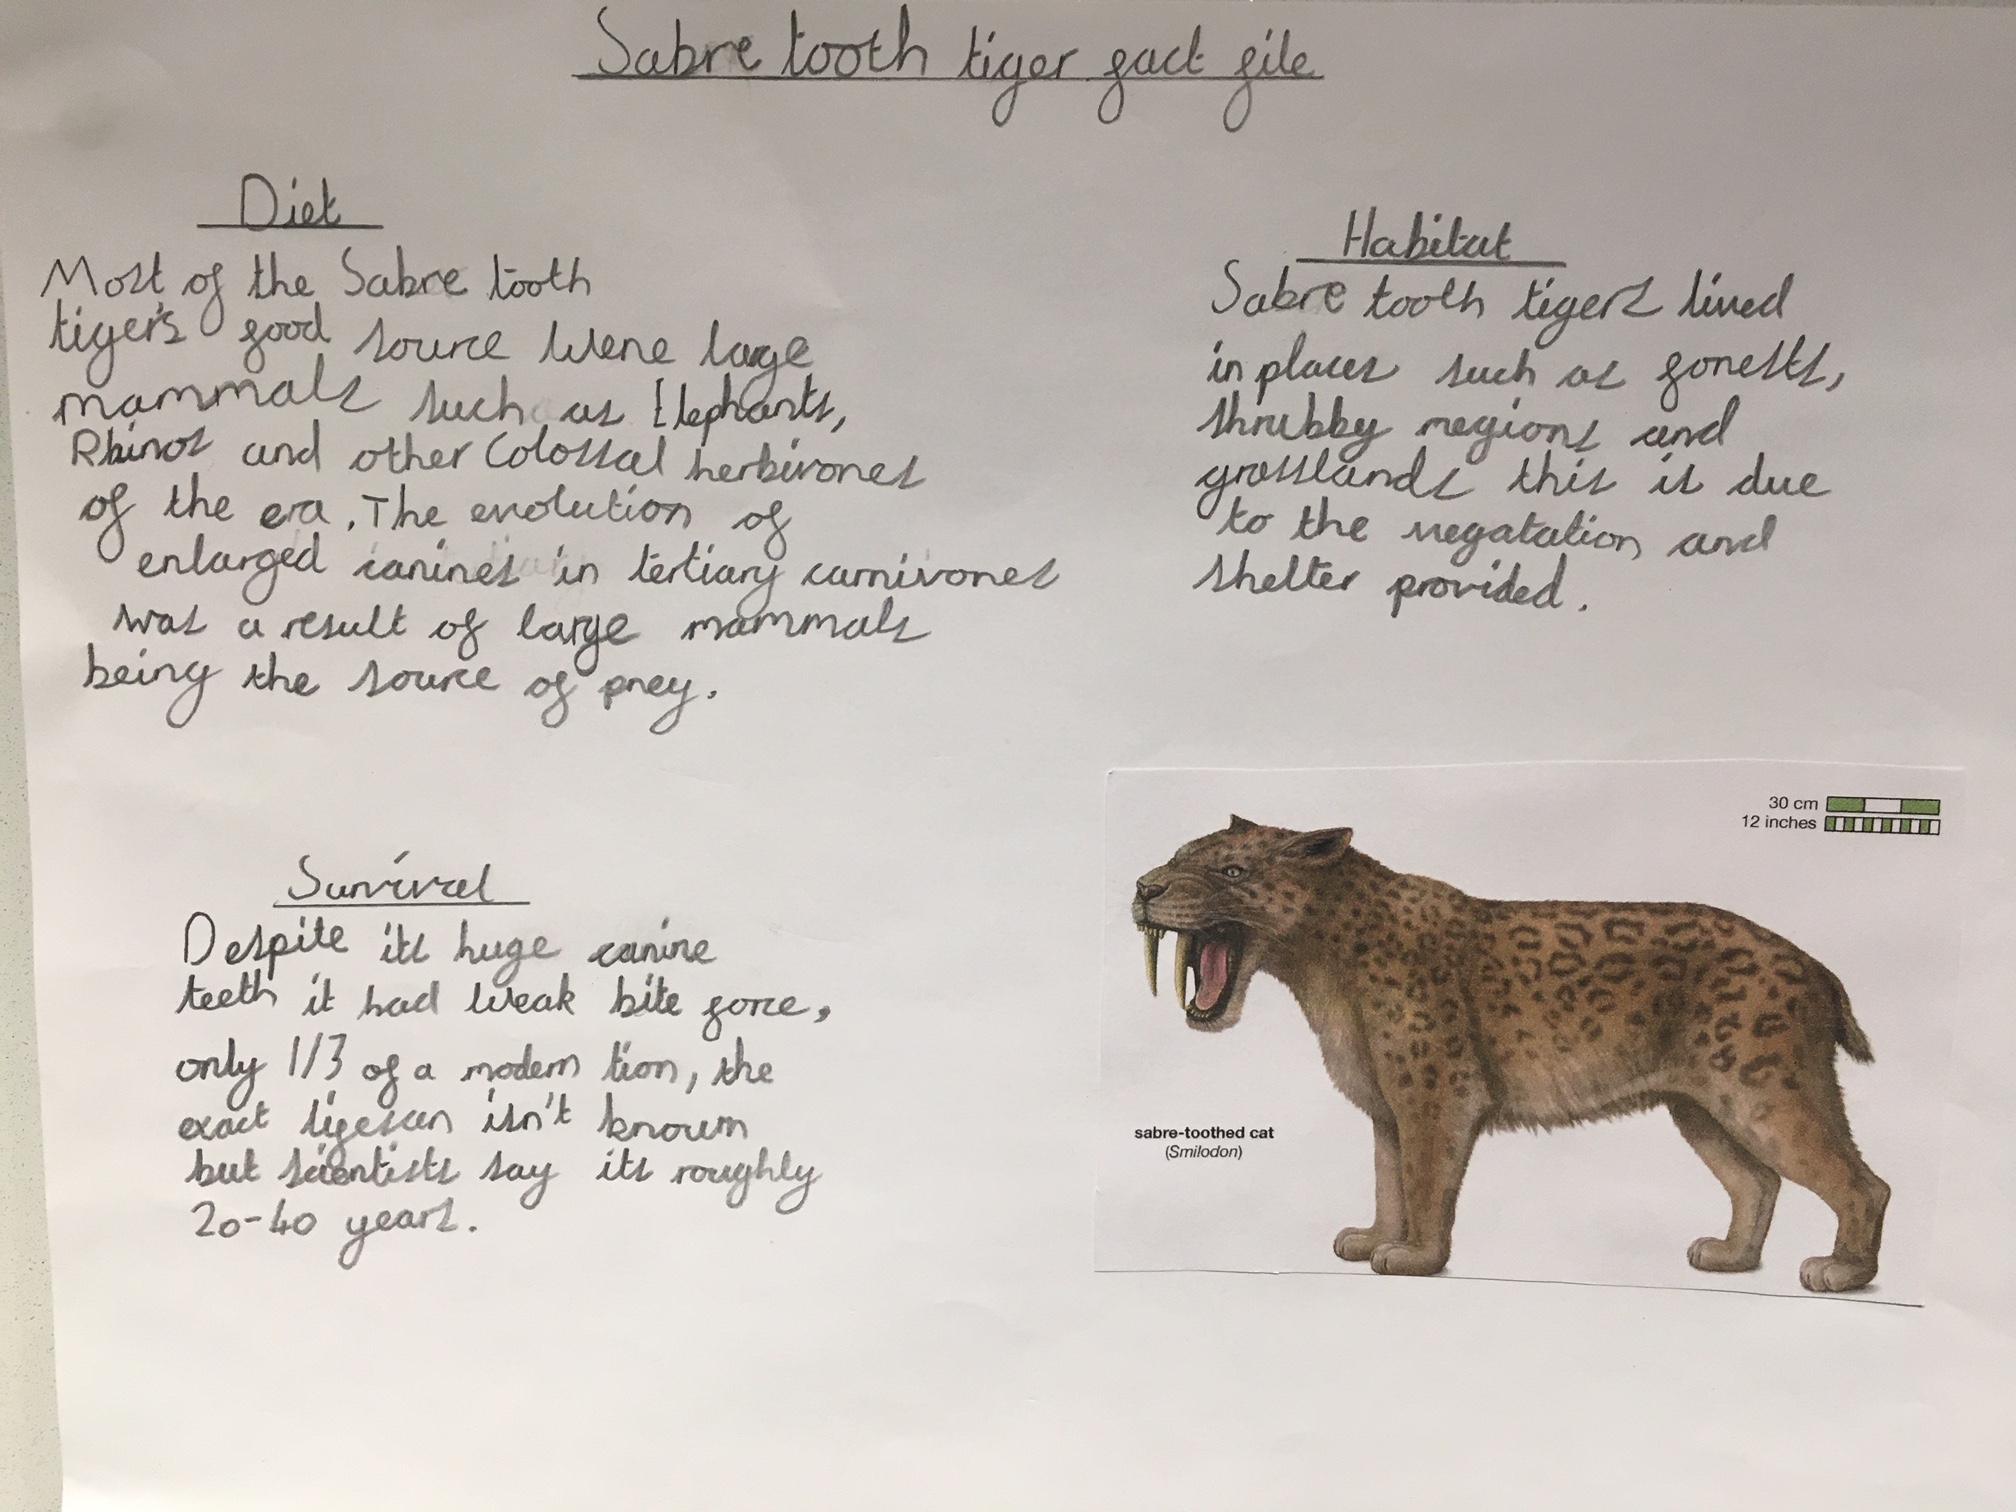 Sabre tooth tiger fact file
Diet
Most of the Sabre tooth
tiger's food source were large
mammals such as Elephants,
Rhinos and other Colossal herbivores
of the era. The evolution of
enlarged canines in tertiary carnivores
was a result of large mammals
being the source of prey.
Habitat
Sabre tooth tigers lived
in places such as forests,
shrubby regions and
grasslands this is due
to the vegatation and
shelter provided.
Survival
Despite its huge canine
teeth it had weak bite force,
only 1/3 of a modern lion, the
exact lifespan isn't known
but scientists say its roughly
20-40 years.
30 cm
12 inches
sabre-toothed cat
(Smilodon)